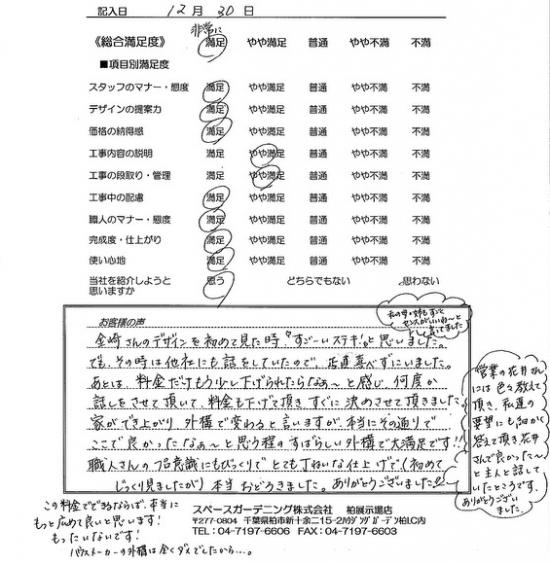 記入日 12月30日
非常に
《総合満足度》 満足 やや満足 普通 やや不満 不満
■項目別満足度
スタッフのマナー・態度 満足 やや満足 普通 やや不満 不満
デザインの提案力 満足 やや満足 普通 やや不満 不満
価格の納得感 満足 やや満足 普通 やや不満 不満
工事内容の説明 満足 やや満足 普通 やや不満 不満
工事の段取り・管理 満足 やや満足 普通 やや不満 不満
工事中の配慮 満足 やや満足 普通 やや不満 不満
職人のマナー・態度 満足 やや満足 普通 やや不満 不満
完成度・仕上がり 満足 やや満足 普通 やや不満 不満
使い心地 満足 やや満足 普通 やや不満 不満
当社を紹介しようと 思う どちらでもない 思わない
思いますか
お客様の声
センスがいいね〜と
言ってました
金崎さんのデザインを初めて見た時"すごーいステキ!"と思いました。
でも、その時は他社にも話をしていたので、正直喜べずにいました。
あとは、料金だけもう少し下げられたらなぁ〜と感じ、何度か
話しをさせて頂いて、料金も下げて頂きすぐに決めさせて頂きました
家ができ上がり、外構で変わると言いますが、本当にその通りで
ここで良かったなぁ〜と思う程のすばらしい外構で大満足です!!
職人さんの知識にもびっくりでとても丁ねいな仕上げで(初めて
じっくり見ましたが)本当おどろきました。ありがとうございました
営業の花井さん
には色々教えて
頂き、私達の
要望にも細かく
答えて頂き花井
さんで良かった〜
と主人と話して
いたところです。
ありがとうござい
ました。
この料金でできるならば、本当に
もっと広めて良いと思います!
もったいないです!
ハウスメーカーの外構は全くダメでしたから…。
スペースガーデニング株式会社 柏展示場店
〒277-0804 千葉県柏市新十余二15-2カシワガーデン柏LC内
TEL:04-7197-6606 FAX:04-7197-6603